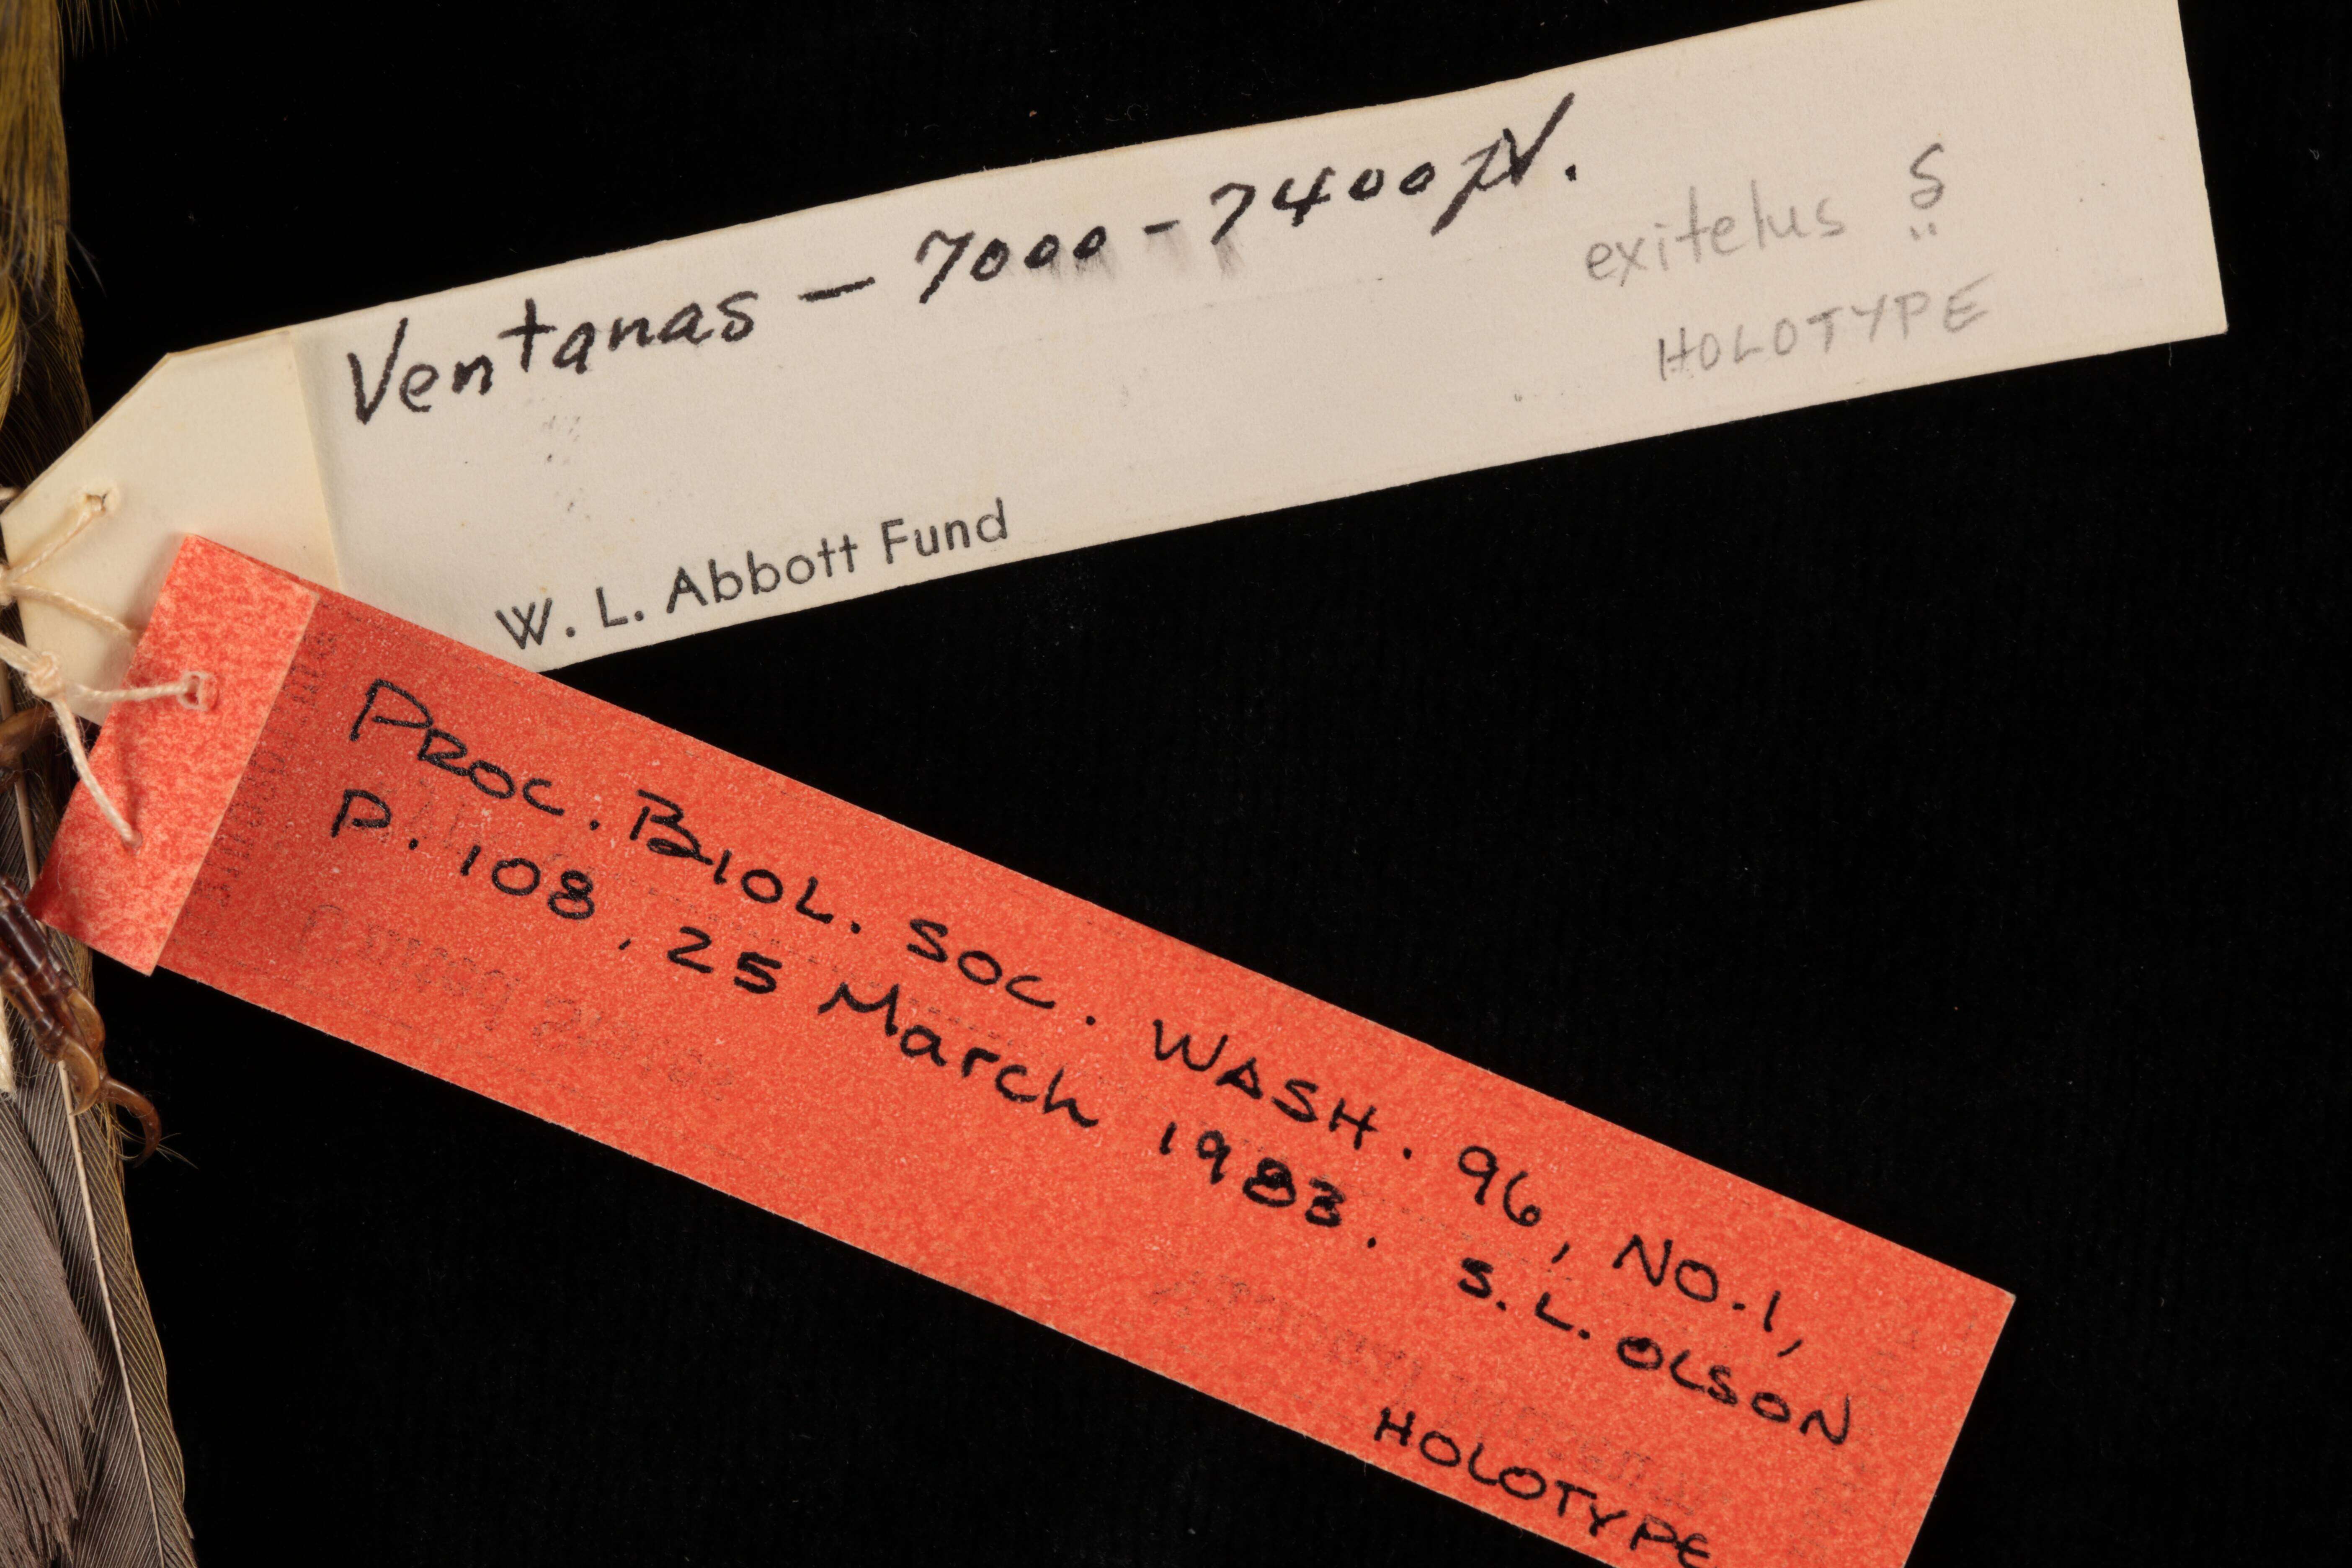 Ventanas — 7000 - 7400 ft.
exitelus S
HOLOTYPE
W. L. Abbott Fund
PROC. BIOL. SOC. WASH. 96, NO. 1,
P. 108, 25 March 1983. S. L. OLSON
HOLOTYPE